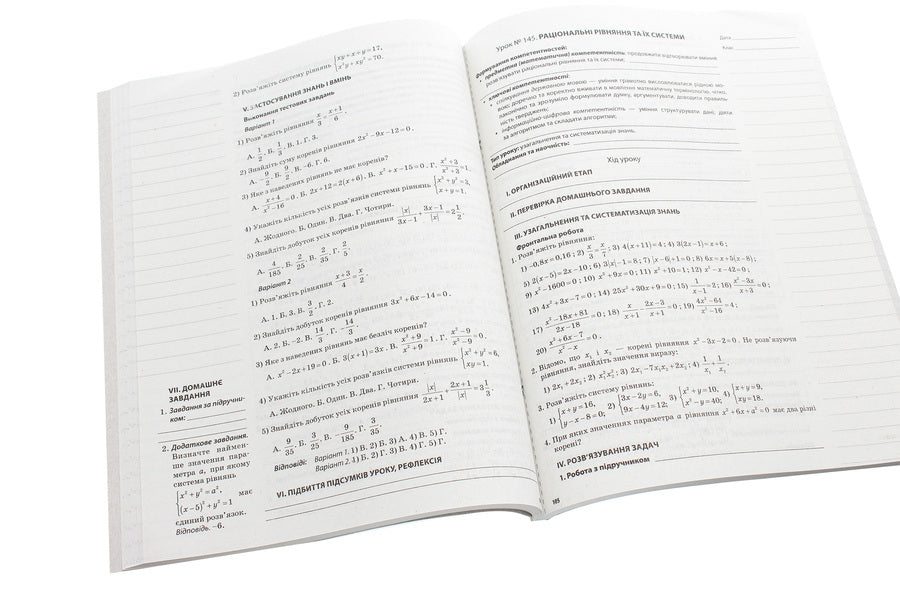 2) Розв’яжіть систему рівнянь {xy+x+y=17, x²y+xy²=70.
V. ЗАСТОСУВАННЯ ЗНАНЬ І ВМІНЬ
Виконання тестових завдань
Варіант 1
1) Розв’яжіть рівняння 3/x = (x+1)/6.
А. 1/2. Б. 1/3. В. 1. Г. 3.
2) Знайдіть суму коренів рівняння 2x²−9x−12=0.
А. −9/2. Б. 9/2. В. −6. Г. 6.
3) Яке з наведених рівнянь не має коренів?
А. (x+4)/(x²−16)=0. Б. 2x+12=2(x+6). В. x²+x−15=0. Г. (x²+3)/(x²+3)=1.
4) Укажіть кількість усіх розв’язків системи рівнянь {x²+y²=3, x+y=1.
А. Жодного. Б. Один. В. Два. Г. Чотири.
5) Знайдіть добуток усіх коренів рівняння |x|/(3x−1) + (3x−1)/|x| = 2 1/2.
А. 4/185. Б. 2/25. В. 2/35. Г. 2/5.
Варіант 2
1) Розв’яжіть рівняння (x+3)/4 = x/2.
А. 1. Б. 3. В. 3/2. Г. 2.
2) Знайдіть добуток коренів рівняння 3x²+6x−14=0.
А. 2. Б. −2. В. 14/3. Г. −14/3.
3) Яке з наведених рівнянь має безліч коренів?
А. x²−2x+19=0. Б. 3(x+1)=3x. В. (x²+9)/(x²+9)=1. Г. (x²−9)/(x²−9)=0.
4) Укажіть кількість усіх розв’язків системи рівнянь {x²+y²=6, xy=1.
А. Жодного. Б. Один. В. Два. Г. Чотири.
5) Знайдіть добуток усіх коренів рівняння |x|/(2x+1) + (2x+1)/|x| = 3 1/3.
А. 9/35. Б. 3/25. В. −9/185. Г. 3/35.
Відповіді: Варіант 1. 1) В. 2) Б. 3) А. 4) В. 5) Г.
Варіант 2. 1) Б. 2) Г. 3) В. 4) Г. 5) Г.
VI. ПІДБИТТЯ ПІДСУМКІВ УРОКУ, РЕФЛЕКСІЯ
VII. ДОМАШНЄ
ЗАВДАННЯ
1. Завдання за підручни-
ком:
2. Додаткове завдання.
Визначте наймен-
ше значення пара-
метра a, при якому
система рівнянь
{x²+y²=a², (x−5)²+y²=1 має
єдиний розв’язок.
Відповідь. −6.
Урок № 145. РАЦІОНАЛЬНІ РІВНЯННЯ ТА ЇХ СИСТЕМИ
Дата
Клас
Формування компетентностей:
предметна (математична) компетентність: продовжити відпрацювати вміння
розв’язувати раціональні рівняння та їх системи;
• ключові компетентності:
• спілкування державною мовою — уміння грамотно висловлюватися рідною мо-
вою; доречно та коректно вживати в мовленні математичну термінологію, чітко,
лаконічно та зрозуміло формулювати думку, аргументувати, доводити правиль-
ність тверджень;
• інформаційно-цифрова компетентність — уміння структурувати дані, діяти
за алгоритмом та складати алгоритми;
Тип уроку: узагальнення та систематизація знань.
Обладнання та наочність:
Хід уроку
I. ОРГАНІЗАЦІЙНИЙ ЕТАП
II. ПЕРЕВІРКА ДОМАШНЬОГО ЗАВДАННЯ
III. УЗАГАЛЬНЕННЯ ТА СИСТЕМАТИЗАЦІЯ ЗНАНЬ
Фронтальна робота
1. Розв’яжіть рівняння:
1) −0,8x=0,16; 2) x/3=x/7; 3) 4(x+11)=4; 4) 3(2x−1)=x+6;
5) 2(x−5)=2x−10; 6) 3|x|−1=8; 7) |x−6|+1=0; 8) 6x=x+5(x−8);
9) x²−1600=0; 10) x²+9x=0; 11) x²+10=1; 12) x²−x−42=0;
13) 4x²+3x−7=0; 14) 25x²+30x+9=0; 15) 1/(x−1)=2; 16) (x²−3x)/(x+3)=0;
17) (x²−18x+81)/(2x−18)=0; 18) x/(x+1)=(2x−3)/(x+1)=0; 19) (4x²−64)/(x²−16)=4;
20) (x²+6x−7)/(x²−x)=0.
2. Відомо, що x₁ і x₂ — корені рівняння x²−3x−2=0. Не розв’язуючи
рівняння, знайдіть значення виразу:
1) 2x₁+2x₂; 2) x₁²x₂²; 3) 2x₁−7x₁x₂+2x₂; 4) 1/x₁+1/x₂.
3. Розв’яжіть систему рівнянь:
1) {x+y=16, y−x−8=0; 2) {3x−2y=6, 9x−4y=12; 3) {x²+y=10, x²−y=40; 4) {x+y=9, xy=18.
4. При яких значеннях параметра a рівняння x²+6x+a²=0 має два різні
корені?
IV. РОЗВ’ЯЗУВАННЯ ЗАДАЧ
1. Робота з підручником
185